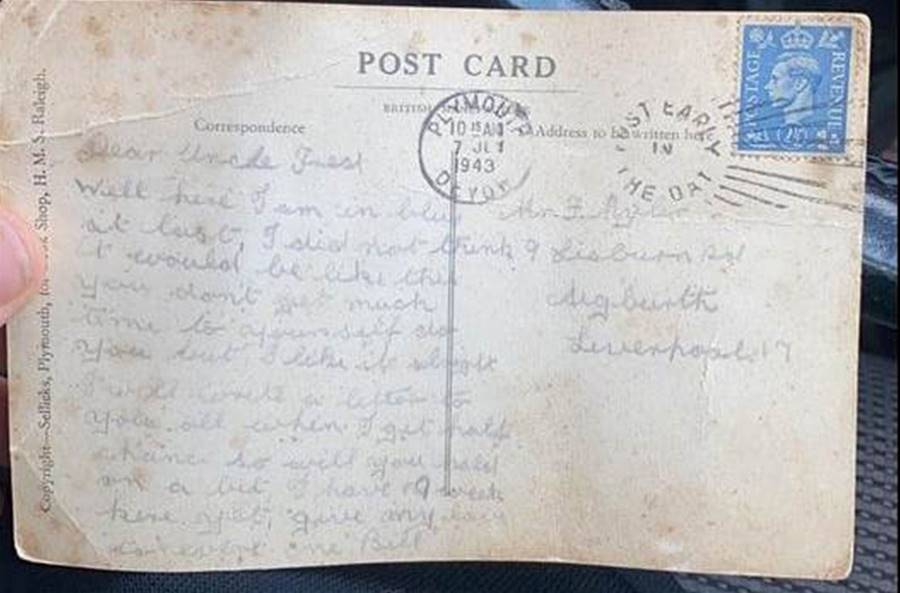 POST CARD
BRITISH
Correspondence
Address to be written here
PLYMOUTH
10 15 AM
7 JLY
1943
DEVON
POST EARLY
IN
THE DAY
POSTAGE
REVENUE
2½D
Copyright—Sellicks, Plymouth, for Shop, H. M. S. Raleigh.
Dear Uncle Fred
Well here I am in blue
at last, I did not think
it would be like this
you don't get much
time to yourself do
you but I like it alright
I will write a letter to
you all when I get half
a chance so will you hold
on a bit, I have 9 week
here yet, give my love
to
Bill
Mr. F.
9 Lisburn Rd
Aigburth
Liverpool. 17